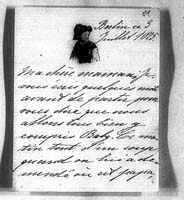 Berlin ce 3
Juillet 18
Ma chère maman, je
vous quelques mots
avant de partir pour
vous dire que nous
allons tous bien y
compris Baby. Ce ma-
tin tout d'un coup
quand on lui a de-
mandé où est papa